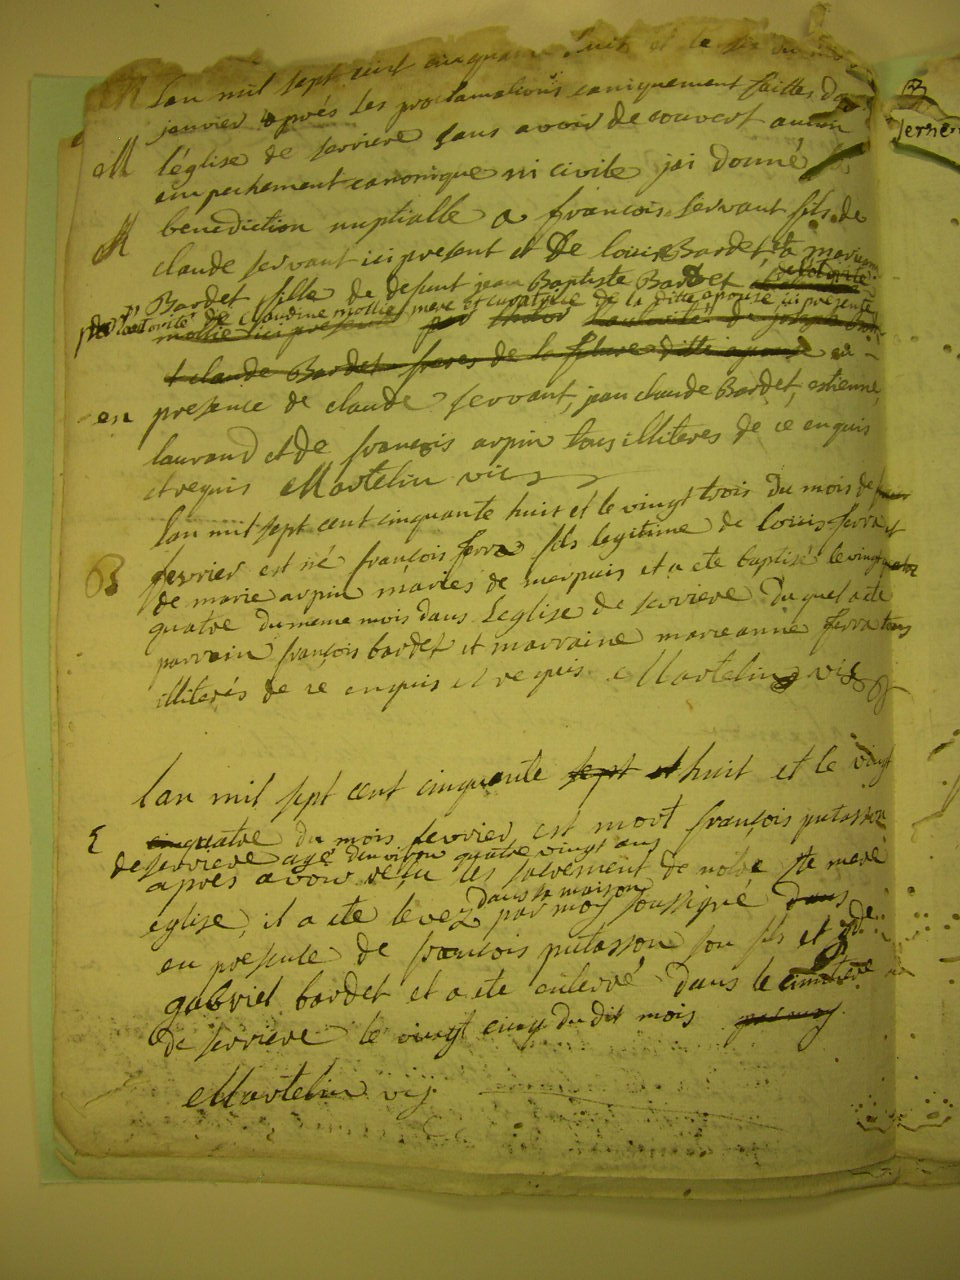 M Lan mil sept cent cinquante huit et le six du mois
janvier aprés les proclamations caniquement faittes da
M léglise de serriere sans avoir decouvert aucun
empechement canonique ni civile jai donné la
M benediction nuptialle a francois servant fils de
claude servant ici present et de louise Bardet, et a
Bardet fille de defunt jean Baptiste Bardet
de lautorité de Claudine mollie mere et curatrice de la ditte epouse ici presente
mollie ici present par lautorité de joseph
et claude Bardet freres de la ditte epouse en
en presence de claude servant, jean claude Bardet, estienne
laurand et de francois arpin tous illiteres de ce enquis
et requis Martelin vic
lan mil sept cent cinquante huit et le vingt trois du mois de
B fevrier est né francois ferra fils legitime de louis ferra et
de marie arpin mariés de merpuis et a ete baptisé le vingt
quatre du meme mois dans Leglise de serriere duquel a ete
parrain françois bardet et marraine marie anne ferra tous
illiterés de ce enquis et requis Martelin vic
lan mil sept cent cinquante sept et huit et le vingt
quatre du mois fevrier est mort françois putasson
de serriere agé denviron quatre vingt ans
apres avoir resu les sacrement de notre ste mere
dans sa maison
eglise, il a ete levez par moy soussigné dans
en presence de francois putasson son fils et de
gabriel bardet et a ete enterré dans le cimitere
de serriere le vingt cinq du dit mois par moy
Martelin vic
B